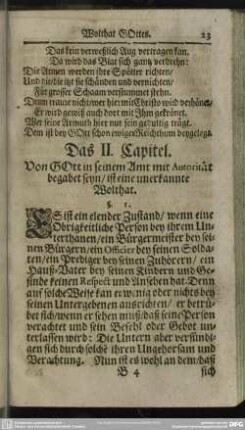 Wolthat GOttes. 23
Das kein verweßlich Aug vertragen kan.
Da wird das Blat sich gantz verdrehn:
Die Armen werden ihre Spötter richten/
Und die/die itzt sie schänden und vernichten/
Für grosser Schaam verstummet stehn.
Drum traure nicht/wer hier mit Christo wird verhönet/
Er wird gewiß auch dort mit Ihm gekrönet.
Wer seine Armuth hier nur fein gedultig trägt.
Dem ist bey GOtt schon ewiger Reichthum beygelegt.
Das II. Capitel.
Von GOtt in seinem Amt mit Autorität
begabet seyn/ ist eine unerkannte
Wolthat.
§. 1.
ES ist ein elender Zustand/ wenn eine
Obrigkeitliche Person bey ihrem Un-
terthanen/ ein Bürgermeister bey sei-
nen Bürgern/ ein Officier bey seinen Solda-
ten/ ein Prediger bey seinen Zuhörern/ ein
Hauß-Vater bey seinen Kindern und Ge-
sinde keinen Respect und Ansehen hat. Denn
auf solche Weise kan er wenig oder nichts bey
seinen Untergebenen ausrichten/ er betrü-
bet sich/wenn er sehen muß/daß seine Person
verachtet und sein Befehl oder Gebot un-
terlassen werd: Die Untern aber versündi-
gen sich durch solche ihren Ungehorsam und
Verachtung. Nun ist es wohl an dem/daß
B 4 sich